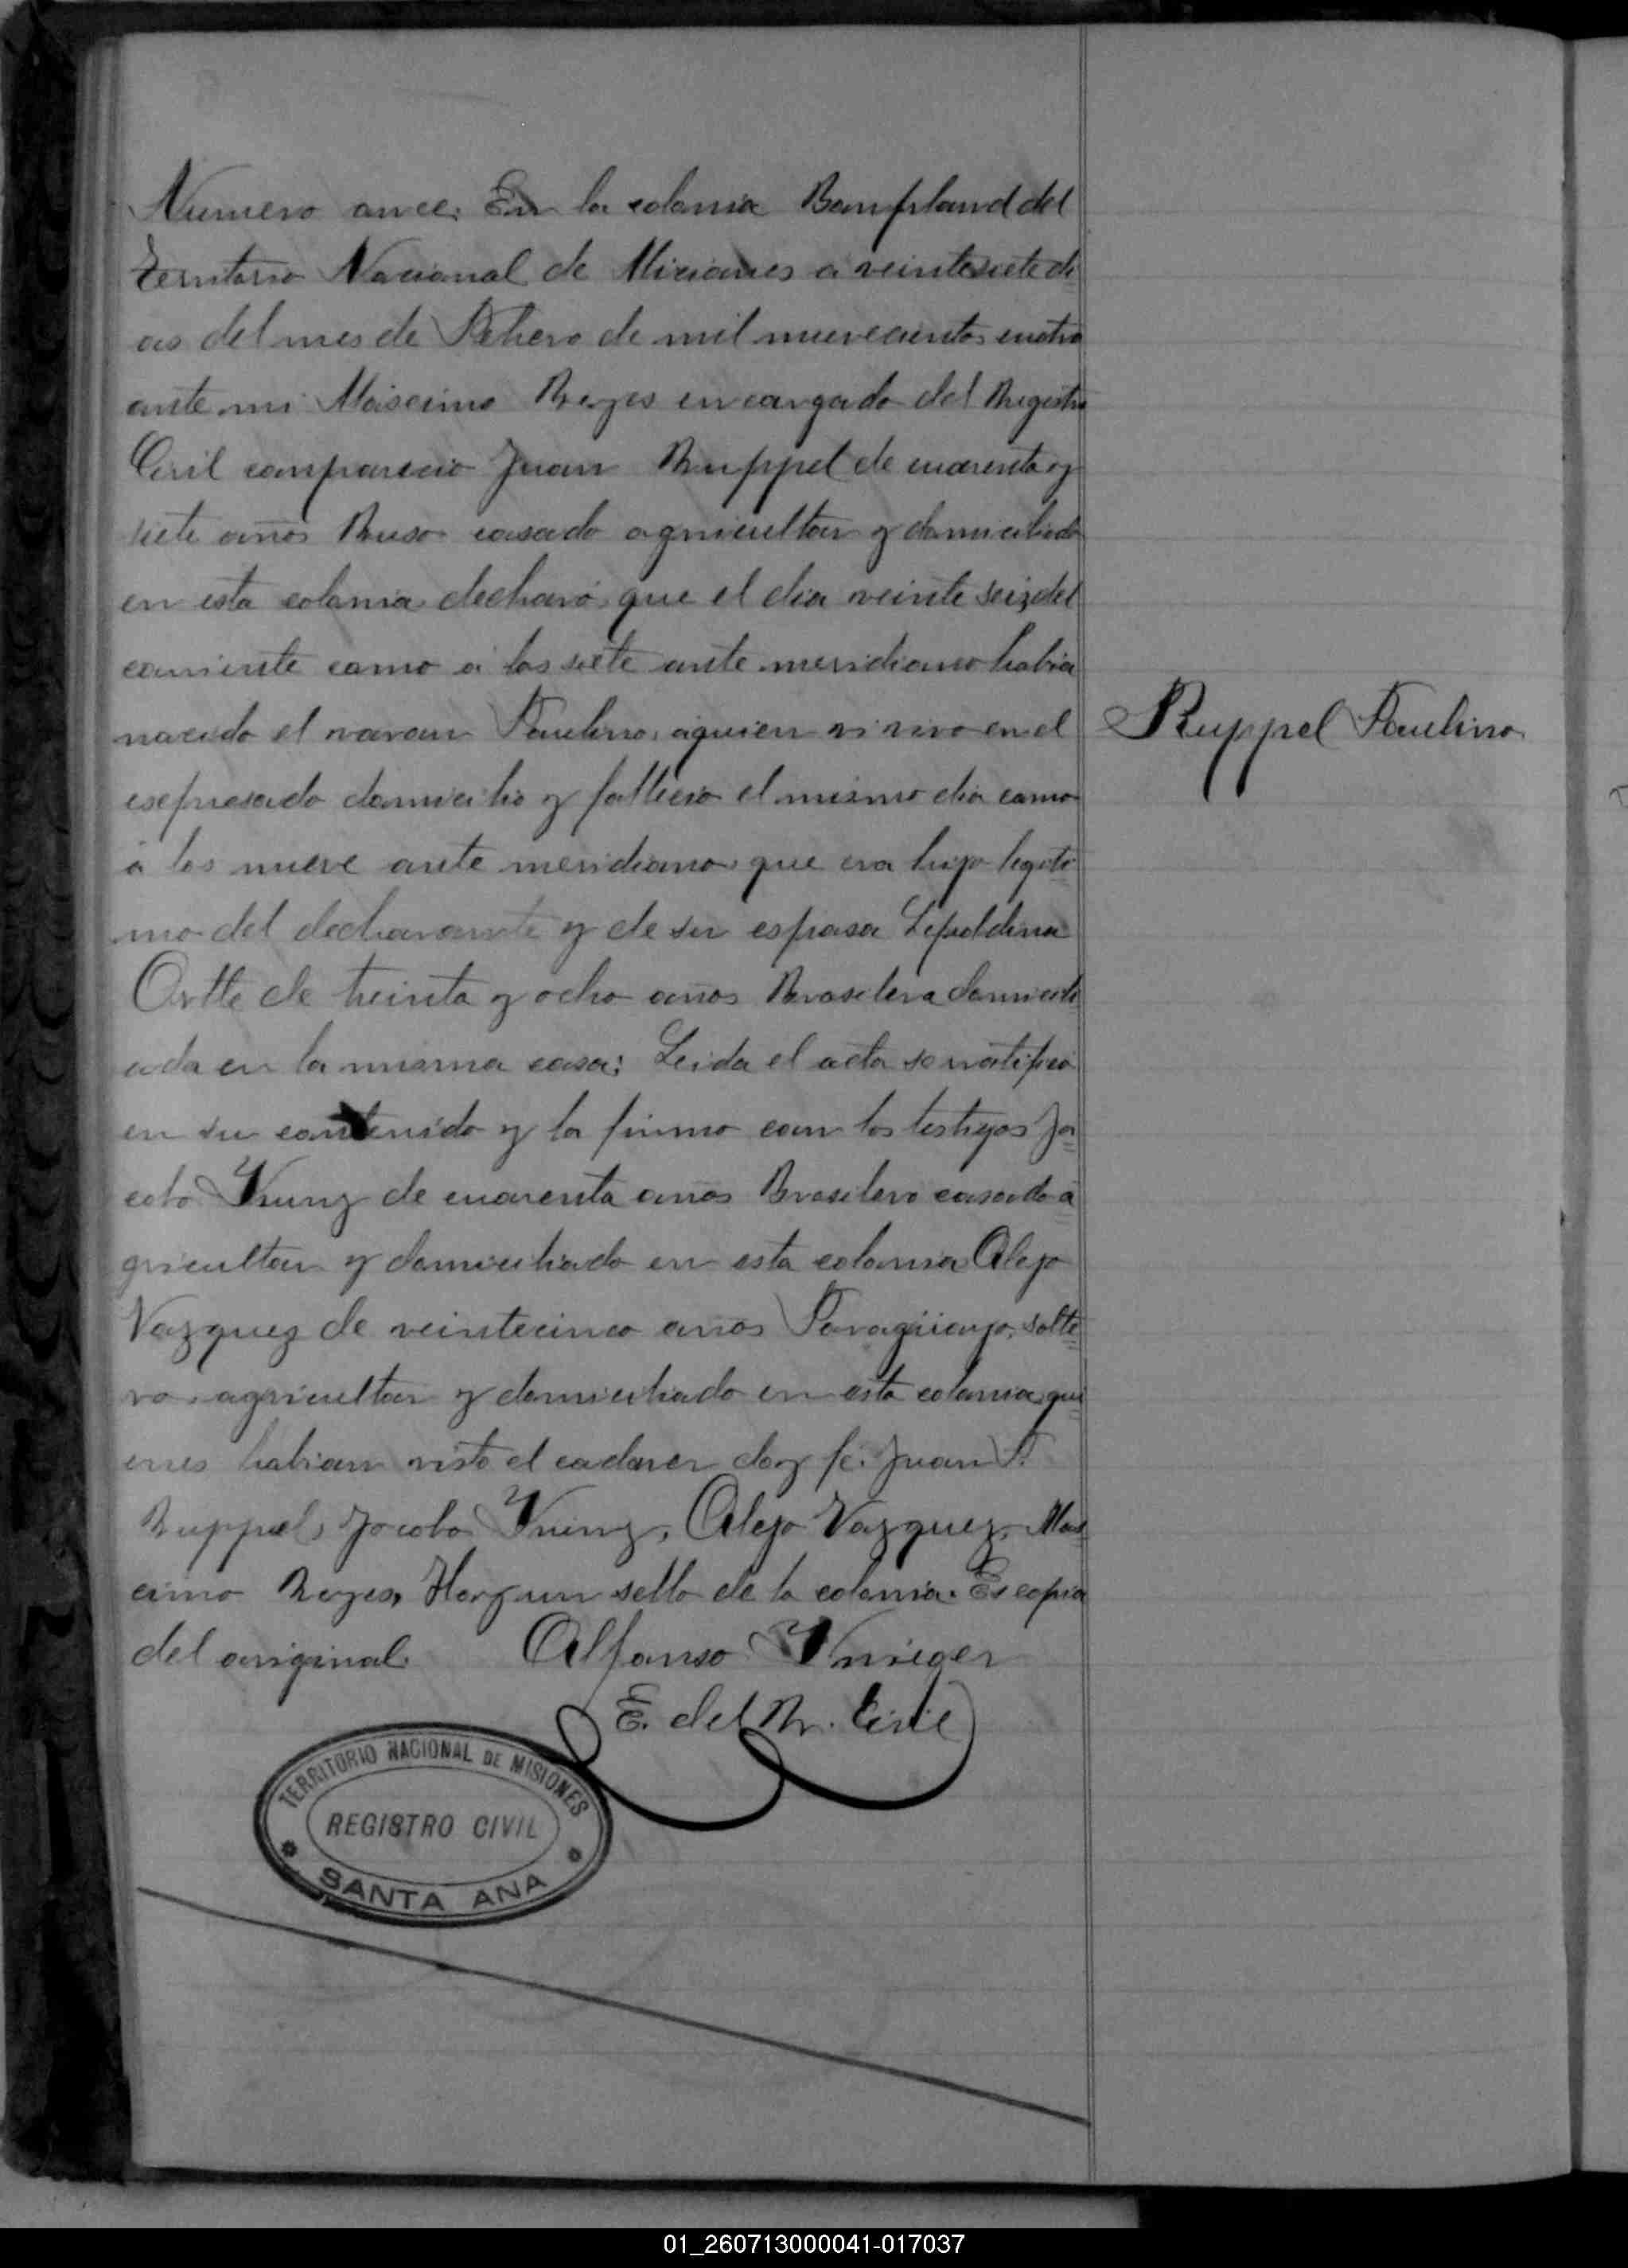 Numero once. En la colonia Bompland del
Territorio Nacional de Miciones a veintesiete di
as del mes de Febrero de mil nuevecientos cuatro
ante mi Máscimo Reyes encargado del Registro
Civil comparecio Juan Ruppel de cuarenta y
siete años Ruso casado agricultor y domiciliado
en esta colonia declaró que el dia veinte seiz del
corriente como á las siete ante meridiano habia
nacido el varon Paulino, aquien vi vivo en el
escpresado domicilio y fallecio el mismo dia como
á las nueve ante meridiano que era hijo legiti
mo del declarante y de su esposa Lepoldina
Ortte de treinta y ocho años Brasilera domicili
ada en la misma casa: Leida el acta se ratifico
en su contenido y la firmo con los testigos Ja
cobo Krung de cuarenta años Brasilero casado a
gricultor y domiciliado en esta colonia Alejo
Vazquez de veintecinco años Paragüayo, solte
ro agricultor y domiciliado en esta colonia qui
enes habian visto el cadaver doy fé. Juan P.
Ruppel, Jacobo Krung, Alejo Vazquez, Mas
cimo Reyes, Hay un sello de la colonia. Es copia
del original. Alfonso Krieger
E. del R. Civil
Ruppel Paulino
TERRITORIO NACIONAL DE MISIONES
REGISTRO CIVIL
SANTA ANA
01_260713000041-017037